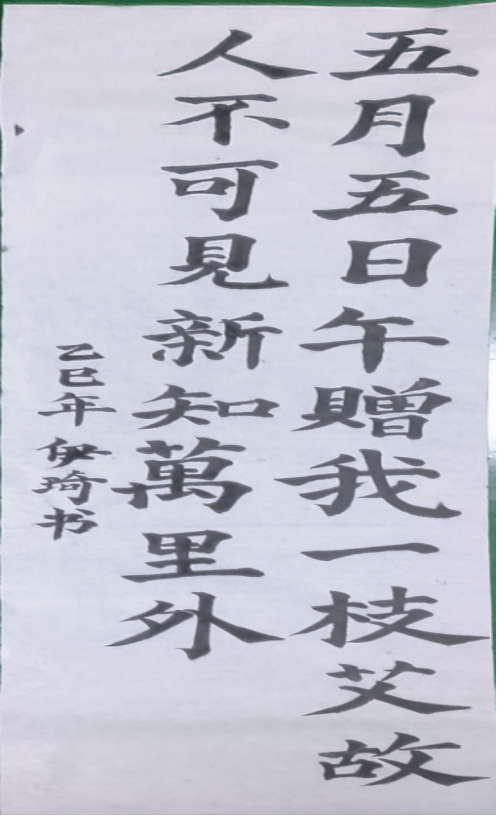 五月五日午贈我一枝艾故
人不可見新知萬里外
乙巳年伊琦书